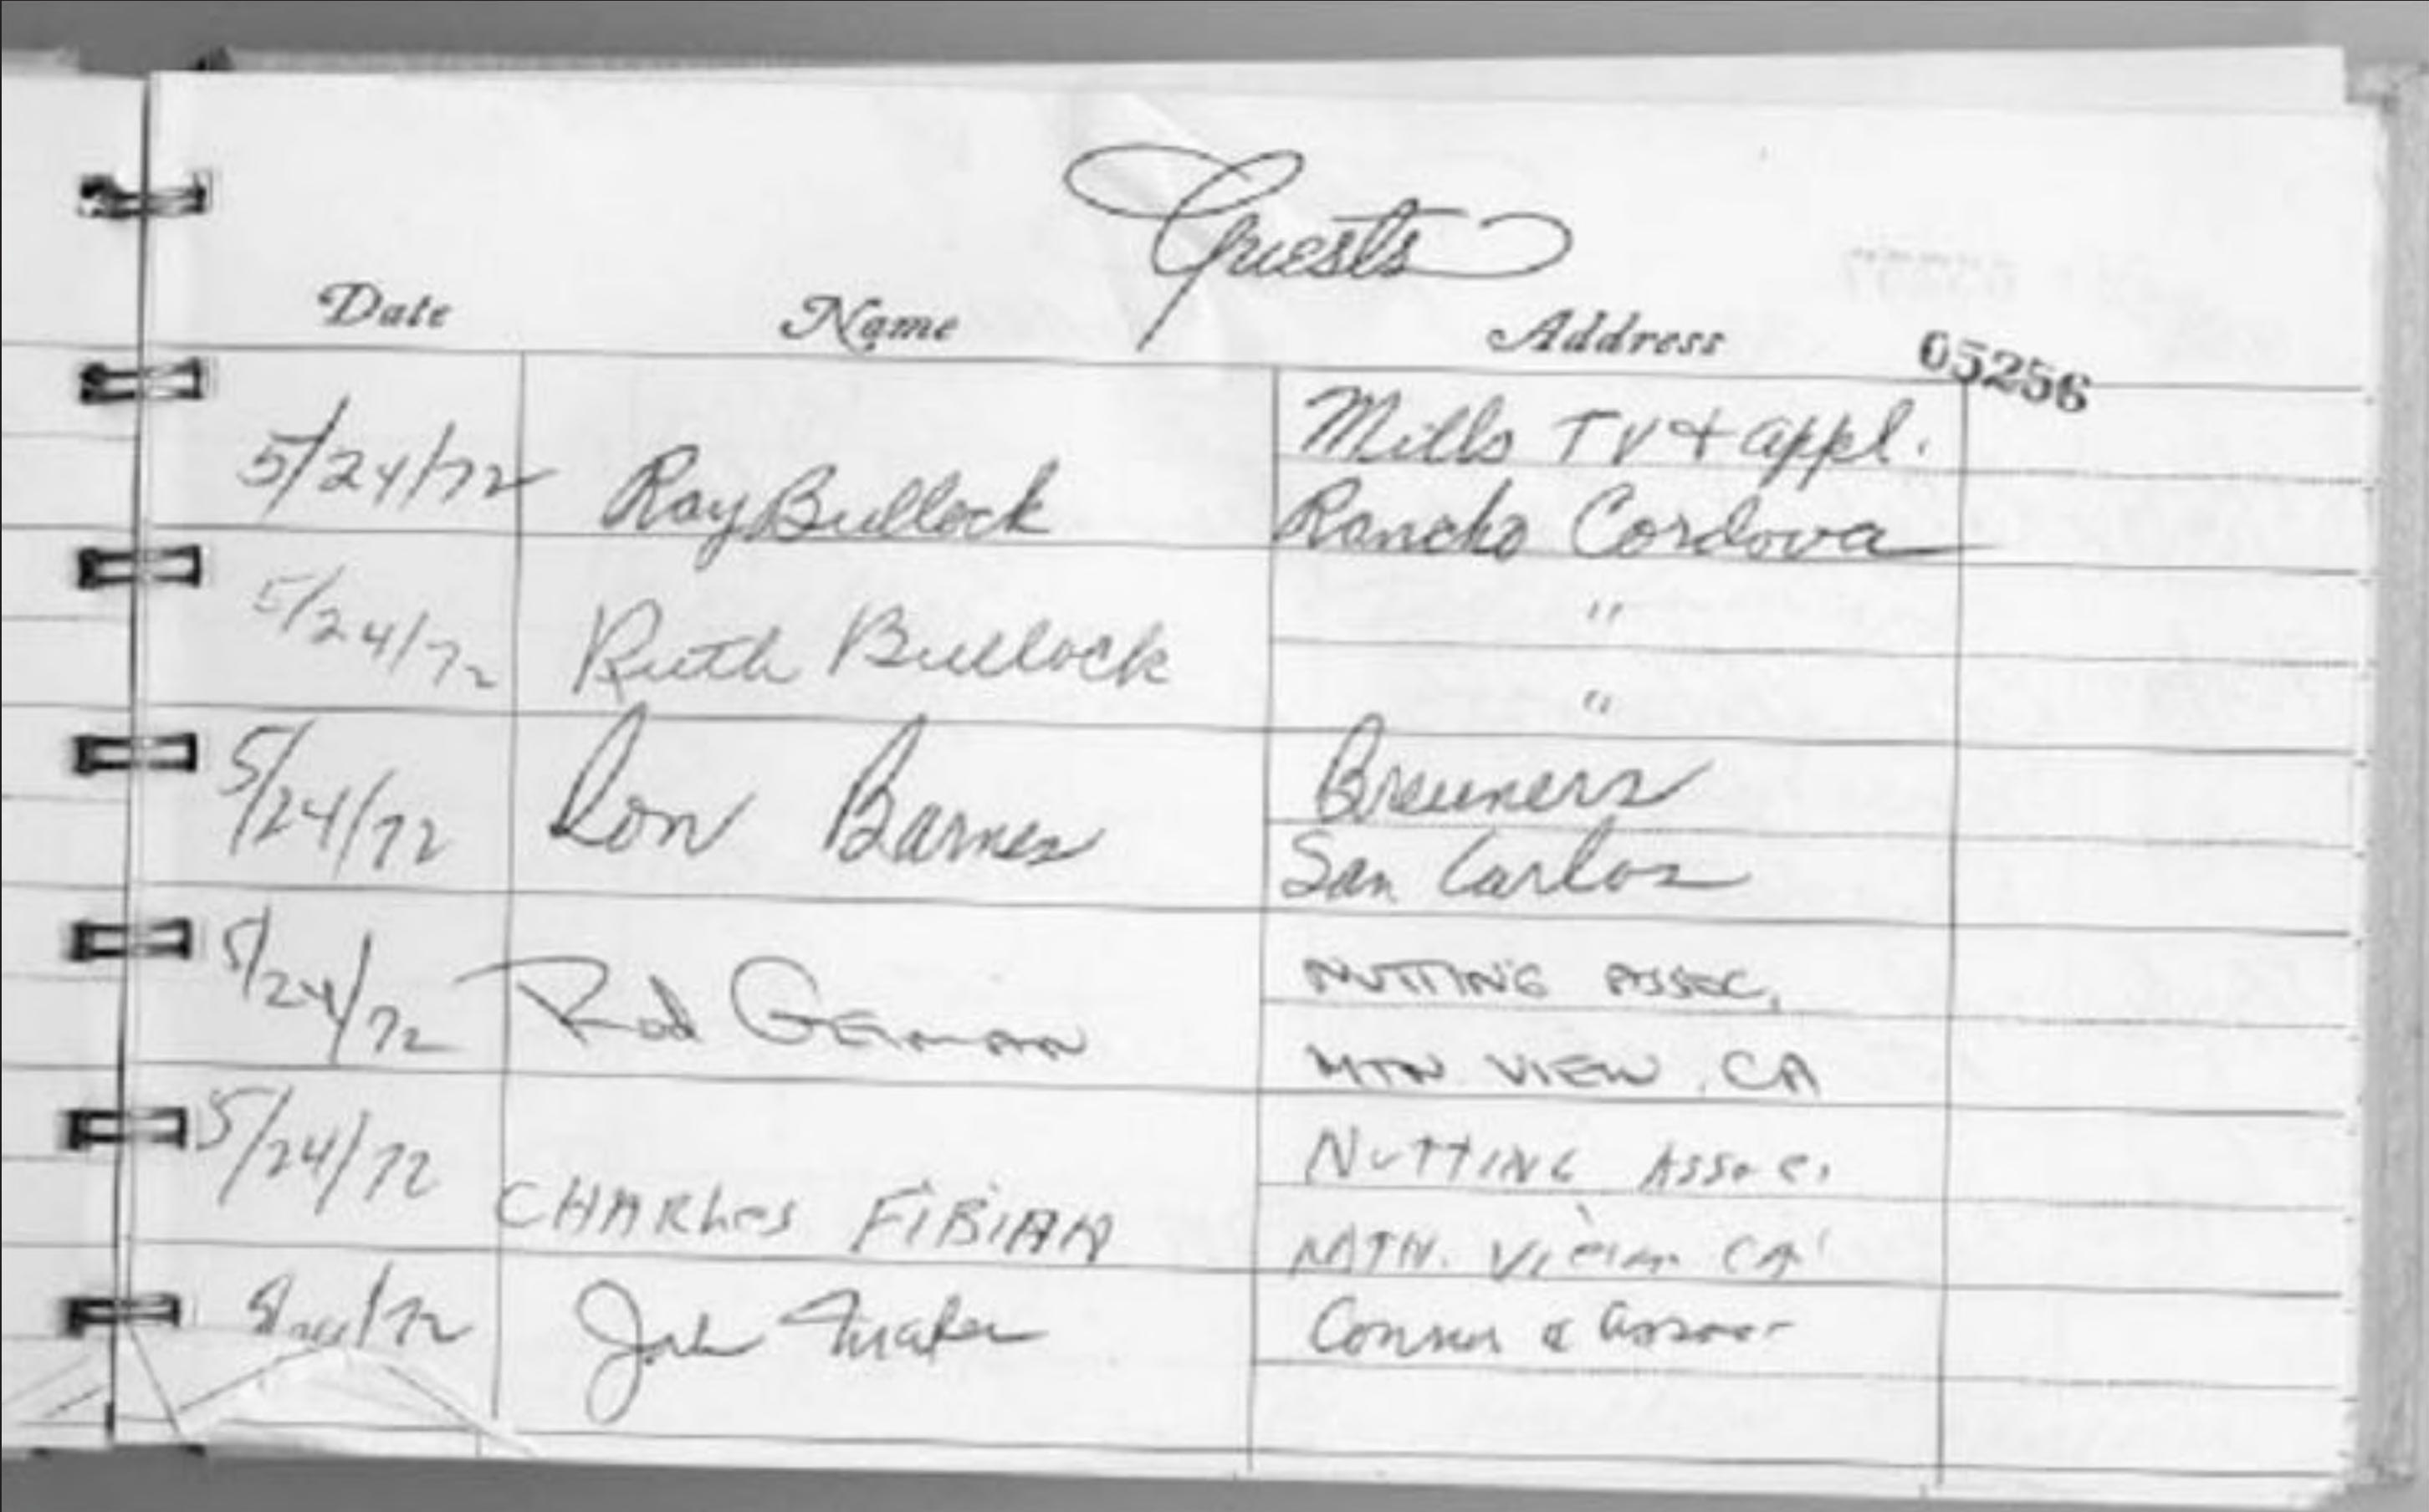 Guests
Date Name Address 05256
Mills TV + appl.
5/24/72 Ray Bullock Rancho Cordova
"
5/24/72 Ruth Bullock "
Breuners
5/24/72 Ron Barnes San Carlos
NUTTING ASSOC.
5/24/72 Rod Geiman MTN VIEW, CA
NUTTING ASSOC.
5/24/72 CHARLES FIBIAN MTN. View CA
John